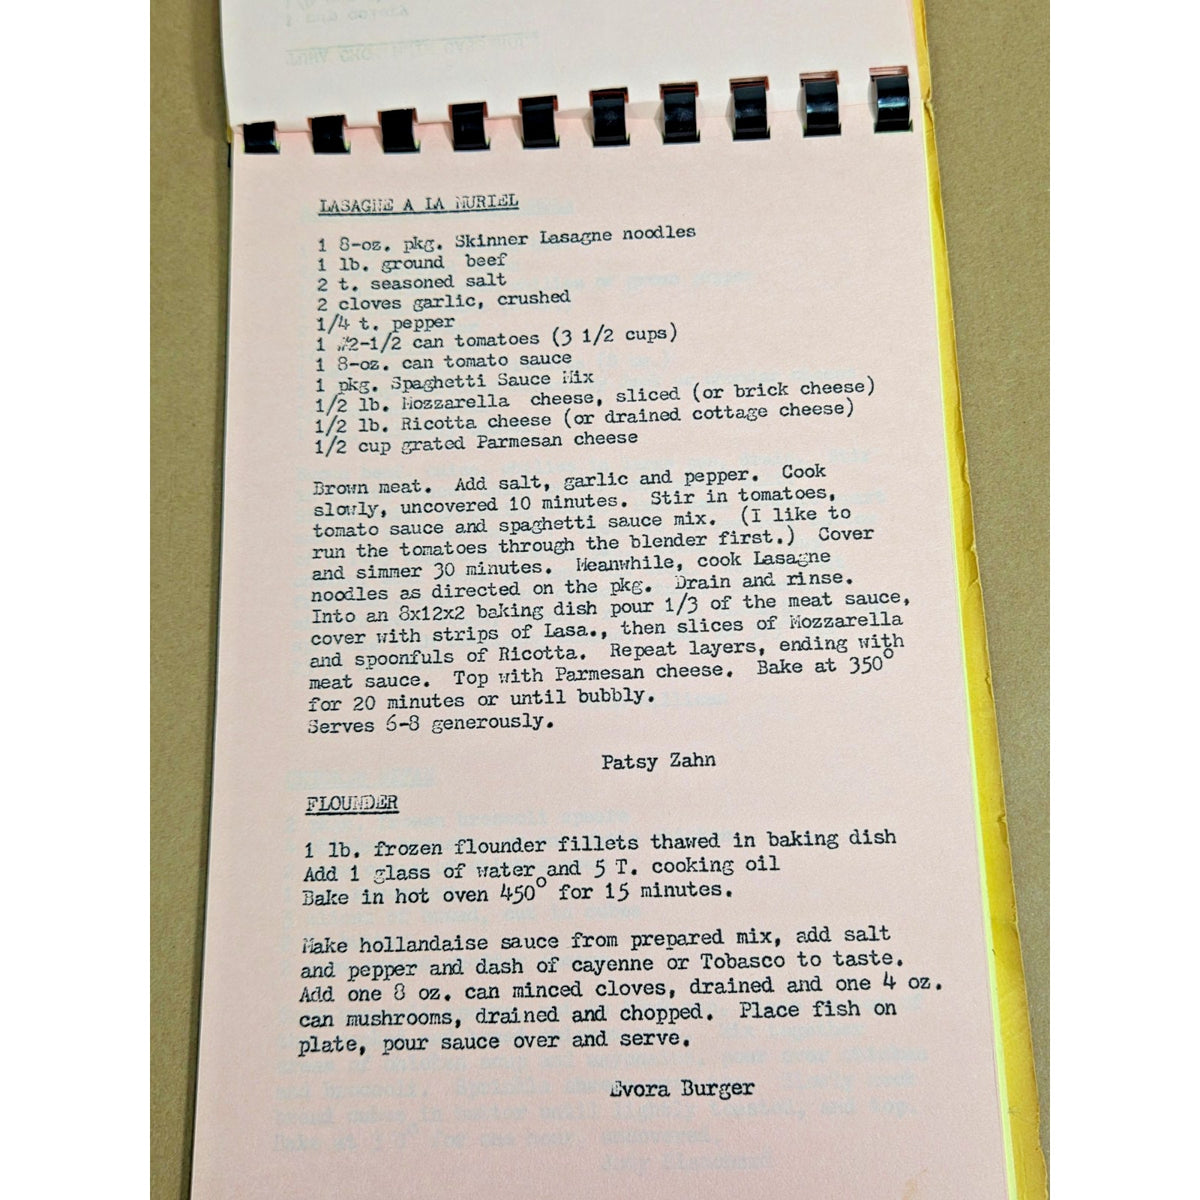 LASAGNE A LA MURIEL
1 8-oz. pkg. Skinner Lasagne noodles
1 lb. ground beef
2 t. seasoned salt
2 cloves garlic, crushed
1/4 t. pepper
1 #2-1/2 can tomatoes (3 1/2 cups)
1 8-oz. can tomato sauce
1 pkg. Spaghetti Sauce Mix
1/2 lb. Mozzarella cheese, sliced (or brick cheese)
1/2 lb. Ricotta cheese (or drained cottage cheese)
1/2 cup grated Parmesan cheese
Brown meat. Add salt, garlic and pepper. Cook
slowly, uncovered 10 minutes. Stir in tomatoes,
tomato sauce and spaghetti sauce mix. (I like to
run the tomatoes through the blender first.) Cover
and simmer 30 minutes. Meanwhile, cook Lasagne
noodles as directed on the pkg. Drain and rinse.
Into an 8x12x2 baking dish pour 1/3 of the meat sauce,
cover with strips of Lasa., then slices of Mozzarella
and spoonfuls of Ricotta. Repeat layers, ending with
meat sauce. Top with Parmesan cheese. Bake at 350°
for 20 minutes or until bubbly.
Serves 6-8 generously.
Patsy Zahn
FLOUNDER
1 lb. frozen flounder fillets thawed in baking dish
Add 1 glass of water and 5 T. cooking oil
Bake in hot oven 450° for 15 minutes.
Make hollandaise sauce from prepared mix, add salt
and pepper and dash of cayenne or Tobasco to taste.
Add one 8 oz. can minced cloves, drained and one 4 oz.
can mushrooms, drained and chopped. Place fish on
plate, pour sauce over and serve.
Evora Burger